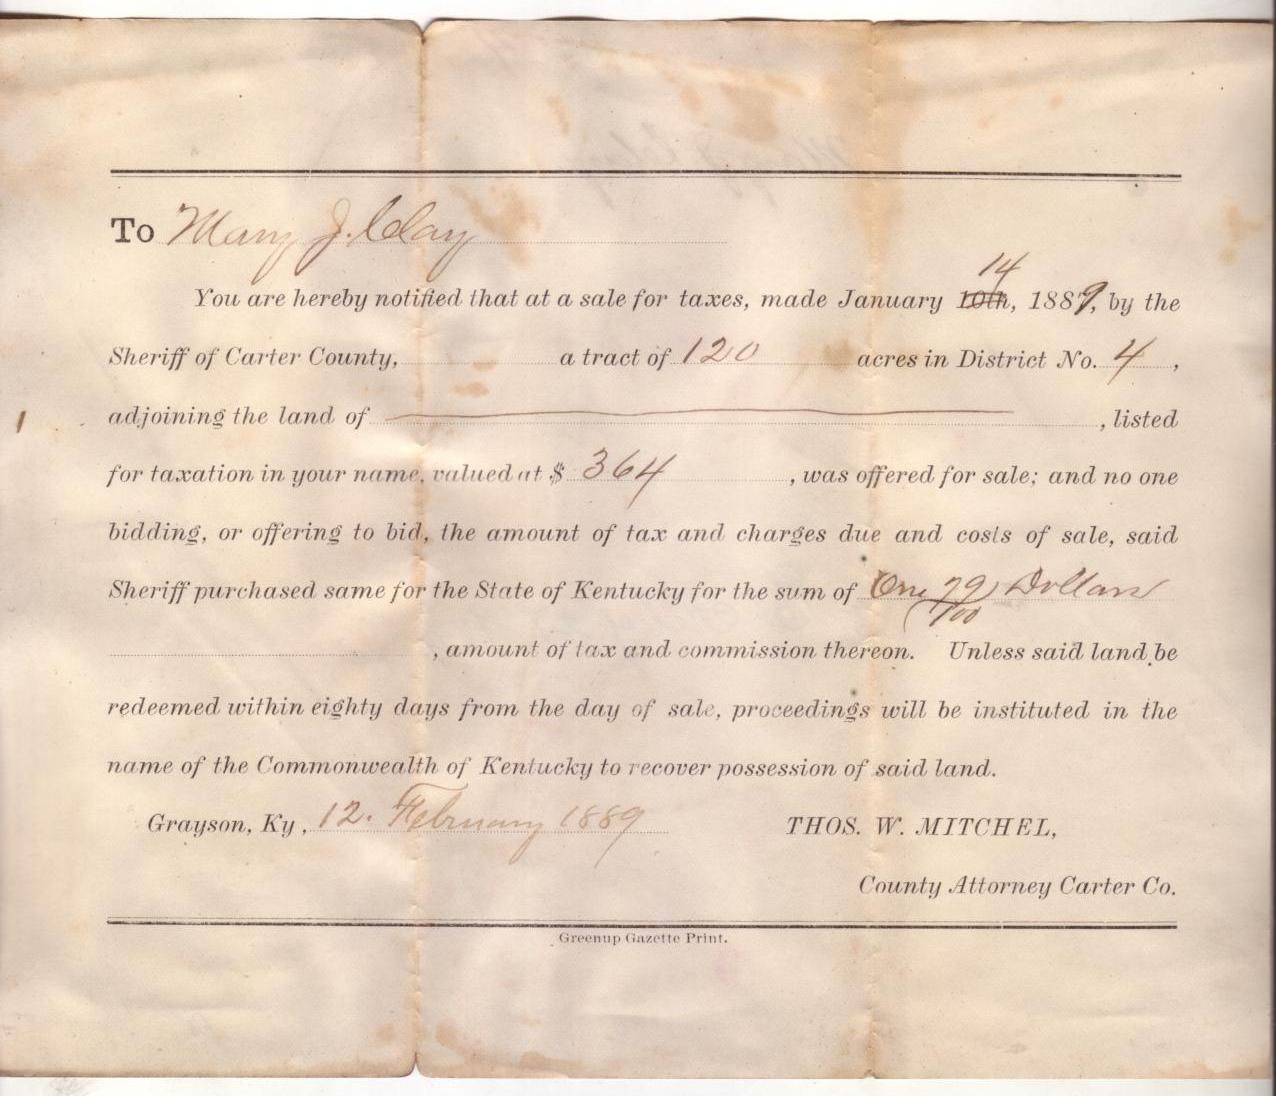 To Mary J. Clay
14
You are hereby notified that at a sale for taxes, made January 10th, 1889, by the
Sheriff of Carter County, a tract of 120 acres in District No. 4,
adjoining the land of , listed
for taxation in your name, valued at $ 364, was offered for sale; and no one
bidding, or offering to bid, the amount of tax and charges due and costs of sale, said
Sheriff purchased same for the State of Kentucky for the sum of One 79/100 Dollars
, amount of tax and commission thereon. Unless said land be
redeemed within eighty days from the day of sale, proceedings will be instituted in the
name of the Commonwealth of Kentucky to recover possession of said land.
Grayson, Ky, 12. February 1889 THOS. W. MITCHEL,
County Attorney Carter Co.
Greenup Gazette Print.